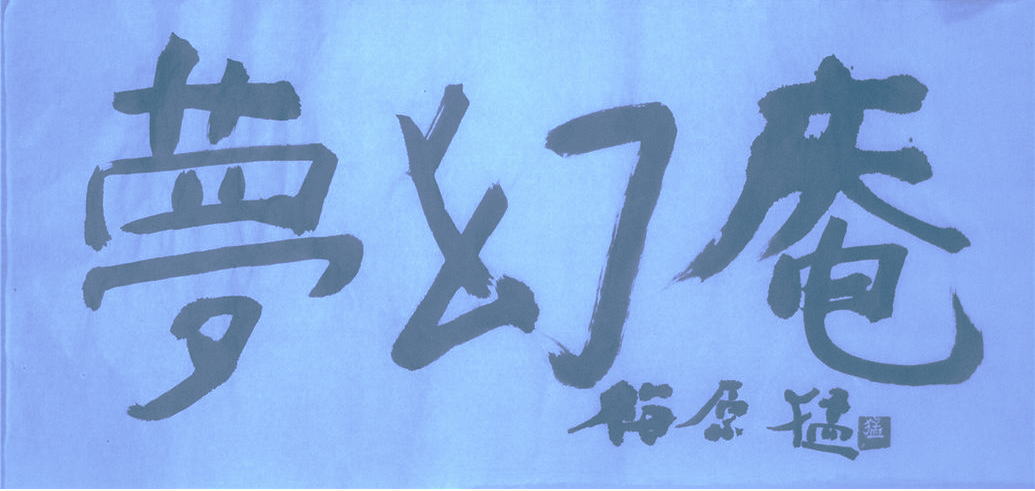 夢幻庵
梅原猛
猛